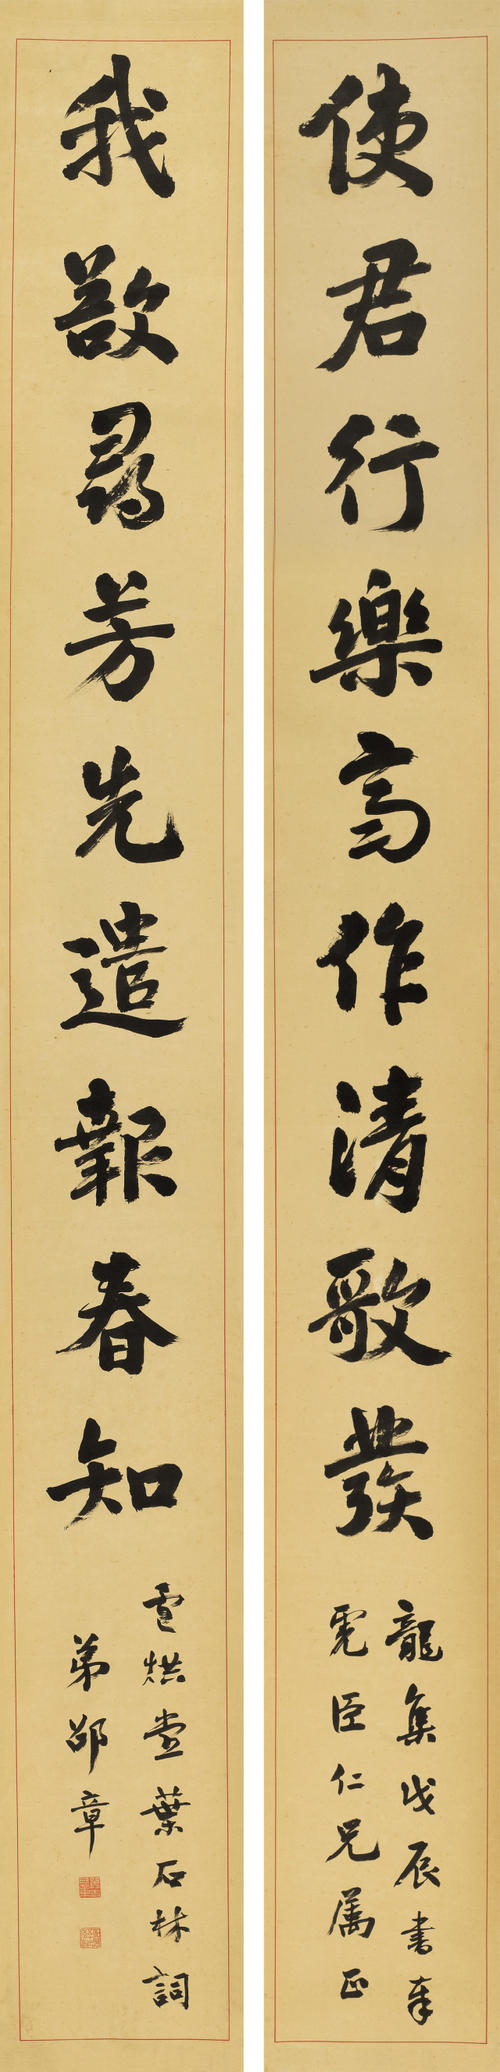 使君行樂高作清歌發
龍集戊辰書奉
虎臣仁兄屬正
我欲尋芳先遣報春知
盧烘堂葉石林詞
弟邵章